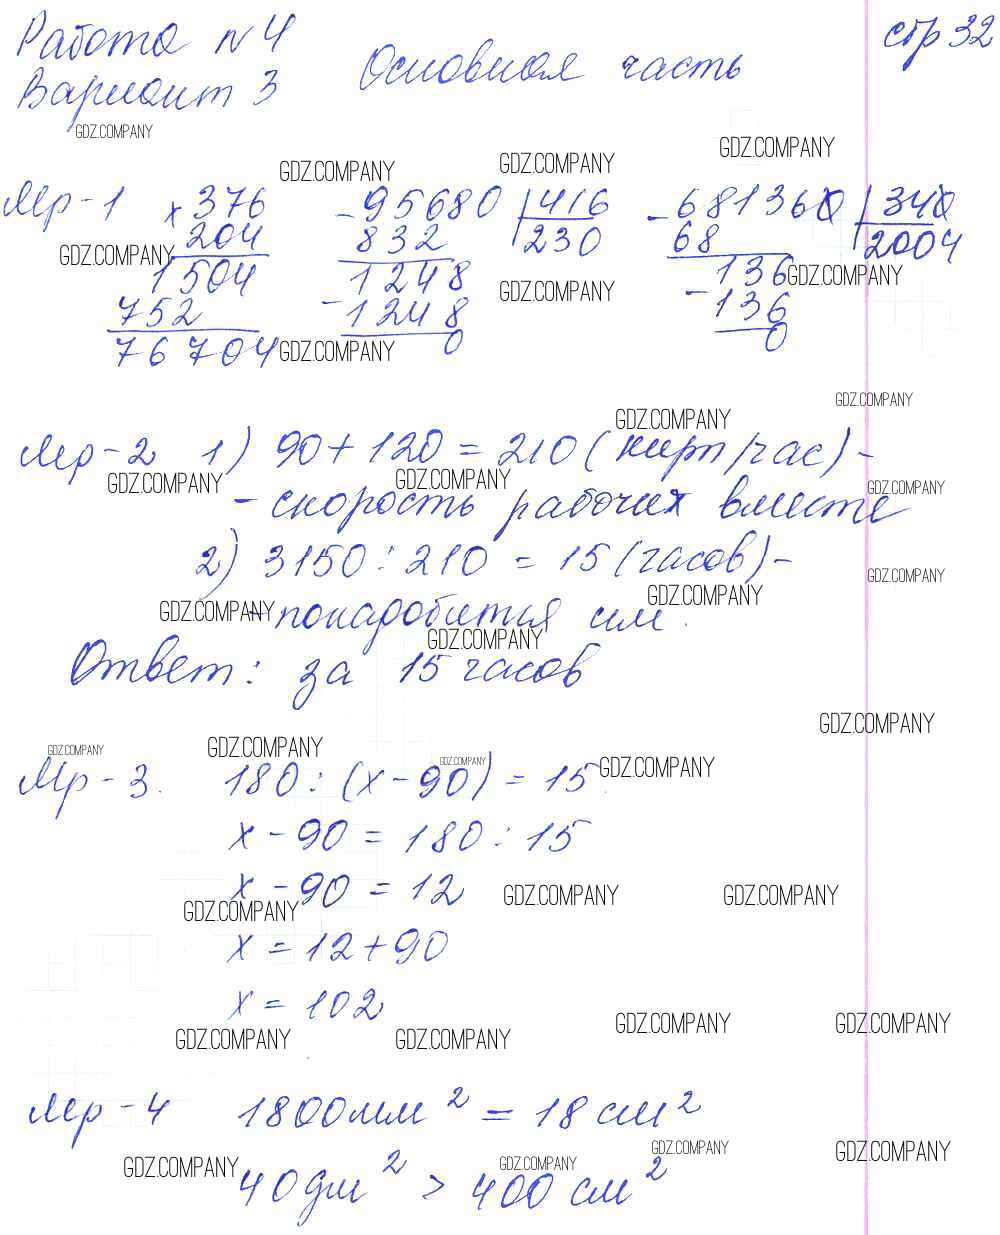 Работа N 4 стр 32
Вариант 3 Основная часть
GDZ.COMPANY
GDZ.COMPANY GDZ.COMPANY GDZ.COMPANY
Мр-1 x 376 - 95680 | 416 - 681360 | 340
204 832 230 68 2004
GDZ.COMPANY 1504 1248 GDZ.COMPANY 136 GDZ.COMPANY
752 - 1248 - 136
76704 GDZ.COMPANY 0 0
GDZ.COMPANY
GDZ.COMPANY
Мр-2 1) 90 + 120 = 210 (кирп/час) -
GDZ.COMPANY GDZ.COMPANY GDZ.COMPANY
- скорость рабочих вместе
2) 3150 : 210 = 15 (часов) -
GDZ.COMPANY
GDZ.COMPANY GDZ.COMPANY
- понадобится им.
GDZ.COMPANY
Ответ: за 15 часов
GDZ.COMPANY
GDZ.COMPANY GDZ.COMPANY GDZ.COMPANY GDZ.COMPANY
Мр-3. 180 : (x - 90) = 15
x - 90 = 180 : 15
x - 90 = 12 GDZ.COMPANY GDZ.COMPANY
GDZ.COMPANY
x = 12 + 90
x = 102
GDZ.COMPANY GDZ.COMPANY
GDZ.COMPANY GDZ.COMPANY
Мр-4 1800 мм² = 18 см²
GDZ.COMPANY GDZ.COMPANY
GDZ.COMPANY GDZ.COMPANY
40 дм² > 400 см²